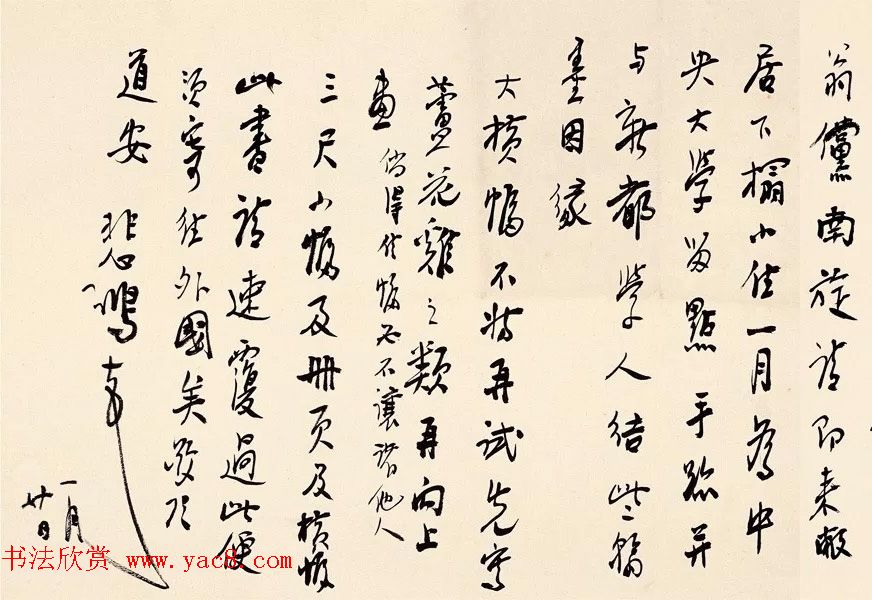 翁儻南旋請即來敝
居下榻小住一月為中
央大學留點手跡并
与新都學人結些翰
墨因緣
大橫幅不妨再試先寫
薑花雞之類再向上
畫倘得佳幅必不讓諸他人
三尺小幅及冊頁及橫幅
此書請速覆過此便
須寄往外國矣敬頌
道安 悲鴻
一月
廿日
书法欣赏 www.yac8.com